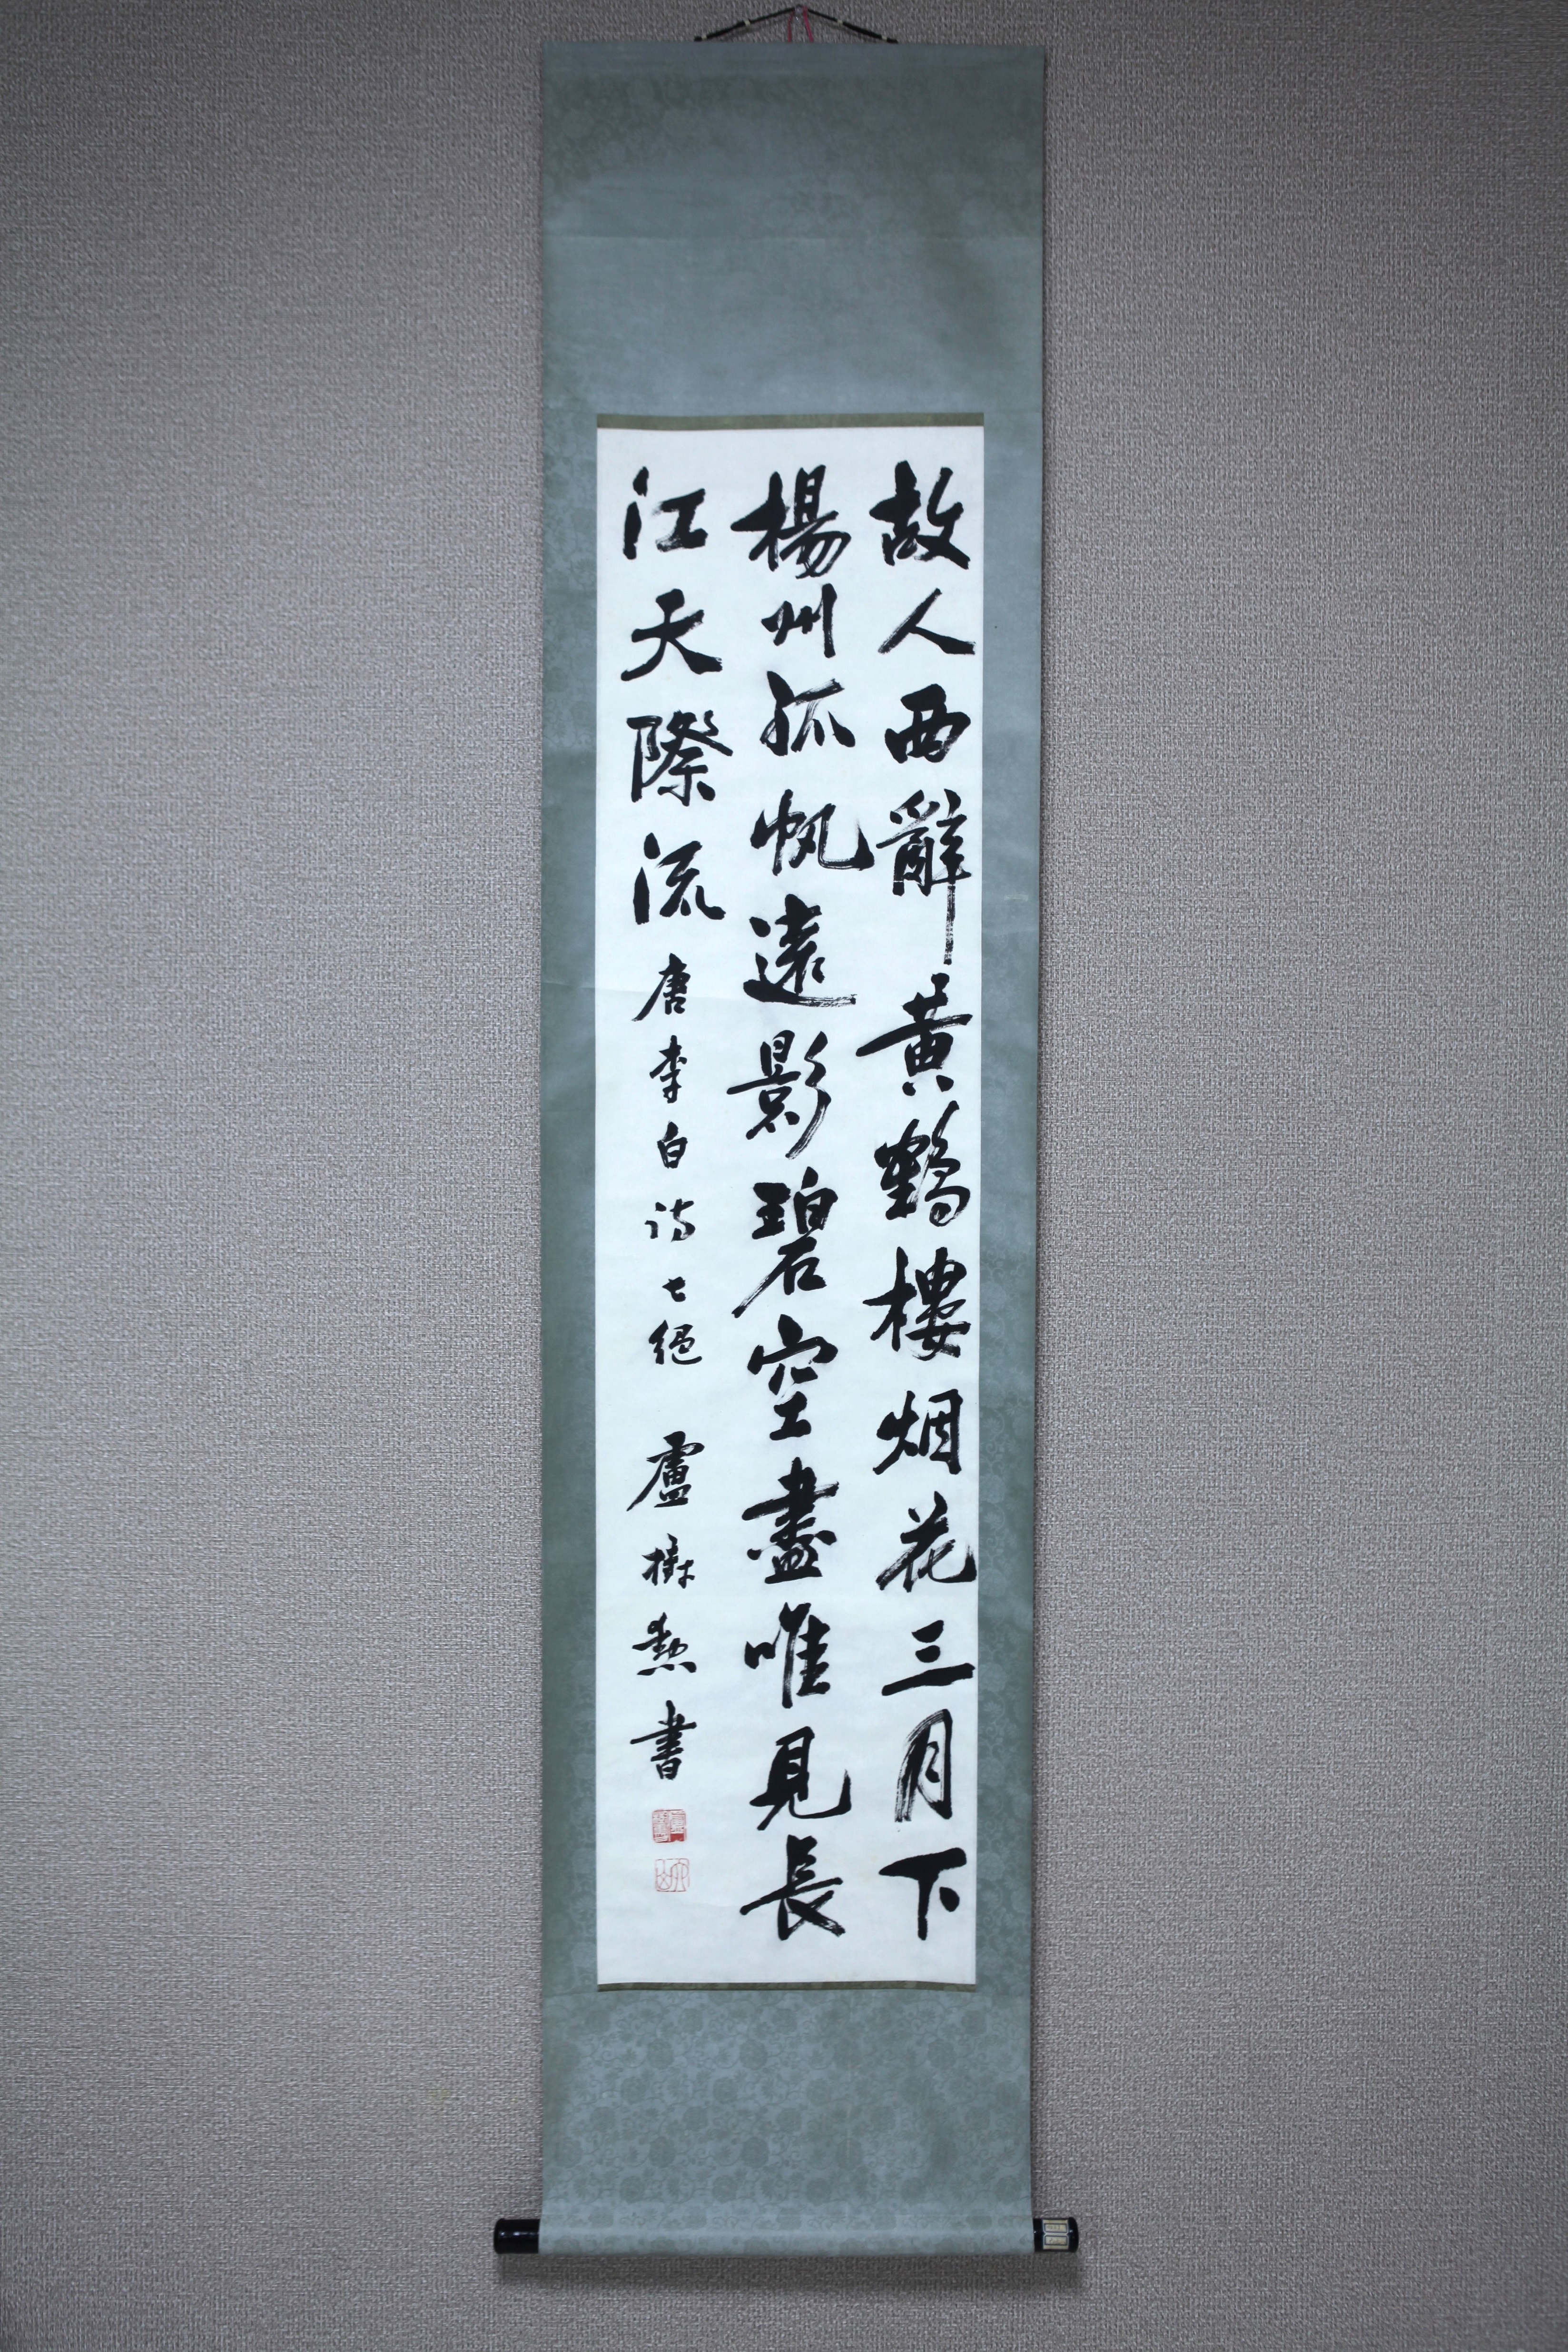 故人西辭黃鶴樓烟花三月下
楊州孤帆遠影碧空盡唯見長
江天際流 唐李白詩七絕 盧樹勲書